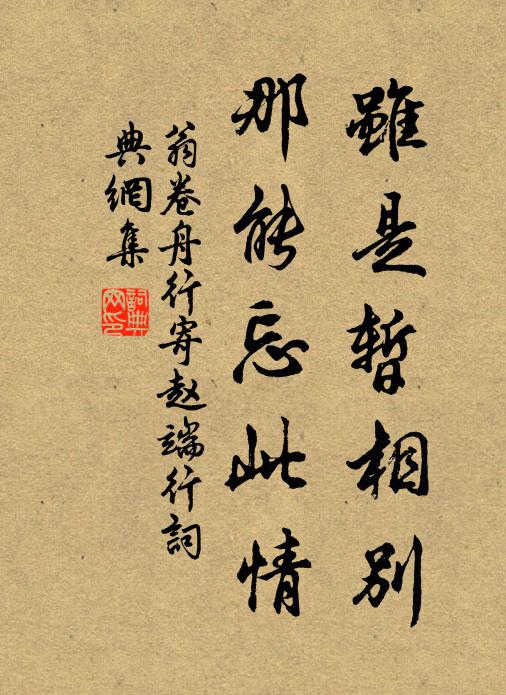 雖是暫相別
那能忘此情
翁卷舟行寄赵端行詞
典網集
詞典
网印